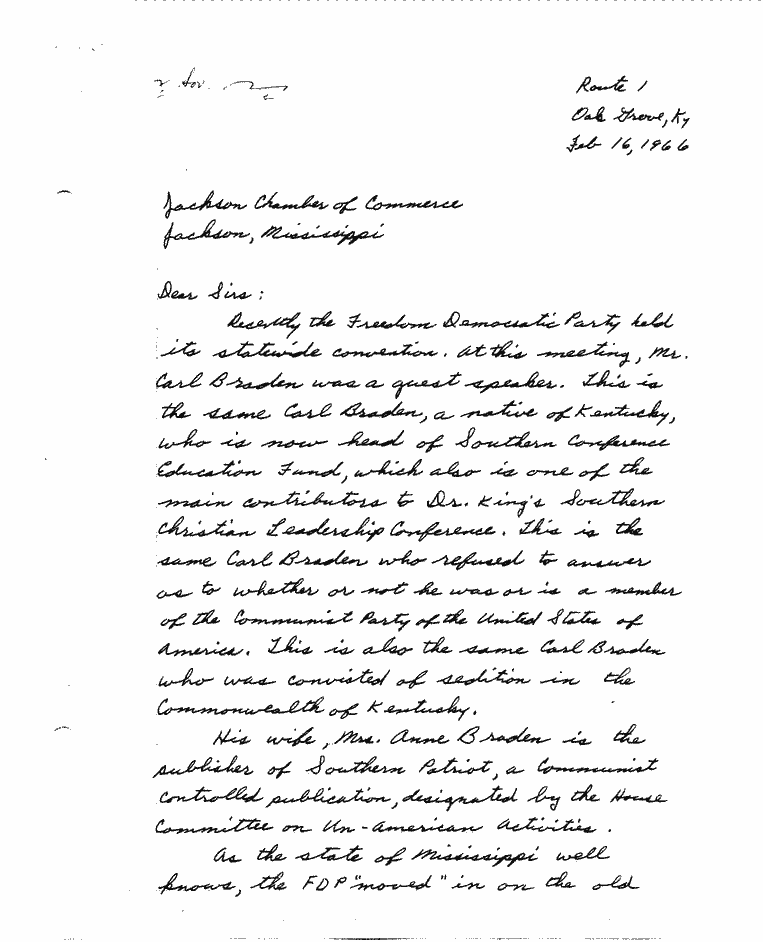 Route 1
Oak Grove, Ky
Feb 16, 1966
Jackson Chamber of Commerce
Jackson, Mississippi
Dear Sirs:
Recently the Freedom Democratic Party held
its statewide convention. At this meeting, Mr.
Carl Braden was a guest speaker. This is
the same Carl Braden, a native of Kentucky,
who is now head of Southern Conference
Education Fund, which also is one of the
main contributors to Dr. King's Southern
Christian Leadership Conference. This is the
same Carl Braden who refused to answer
as to whether or not he was or is a member
of the Communist Party of the United States of
America. This is also the same Carl Braden
who was convicted of sedition in the
Commonwealth of Kentucky.
His wife, Mrs. Anne Braden is the
publisher of Southern Patriot, a Communist
controlled publication, designated by the House
Committee on Un-American Activities.
As the state of Mississippi well
knows, the FDP "moved" in on the old